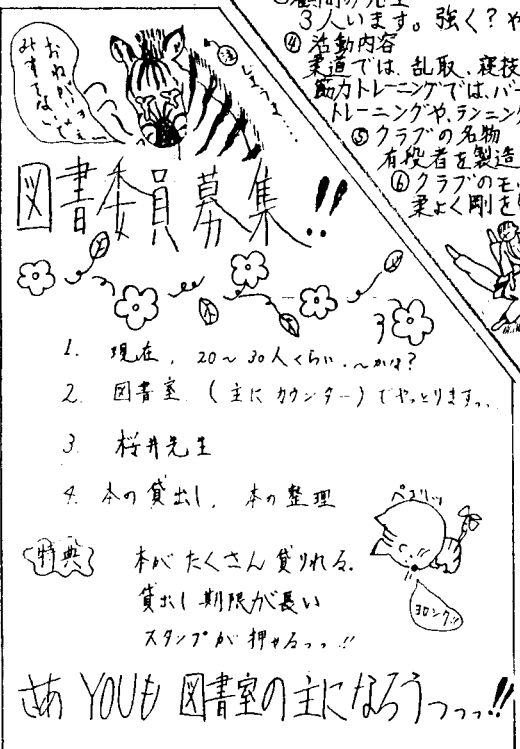 3人います。強く？や
④ 活動内容
柔道では、乱取、寝技
筋力トレーニングでは、バー
トレーニングや、ランニング
⑤ クラブの名物
有段者を製造
⑥ クラブのモッ
柔よく剛を
おねがいっ
みすてないで
図書委員募集!!
1. 現在、20～30人くらい、～かな?
2. 図書室 (主にカウンター)でやっとりますっ、
3. 桜井先生
4. 本の貸出し、本の整理
特典
本がたくさん貸りれる。
貸出し期限が長い
スタンプが押せるっっ!!
ペコリッ
ヨロシク!!
さあ YOUも 図書室の主になろうっっっ!!